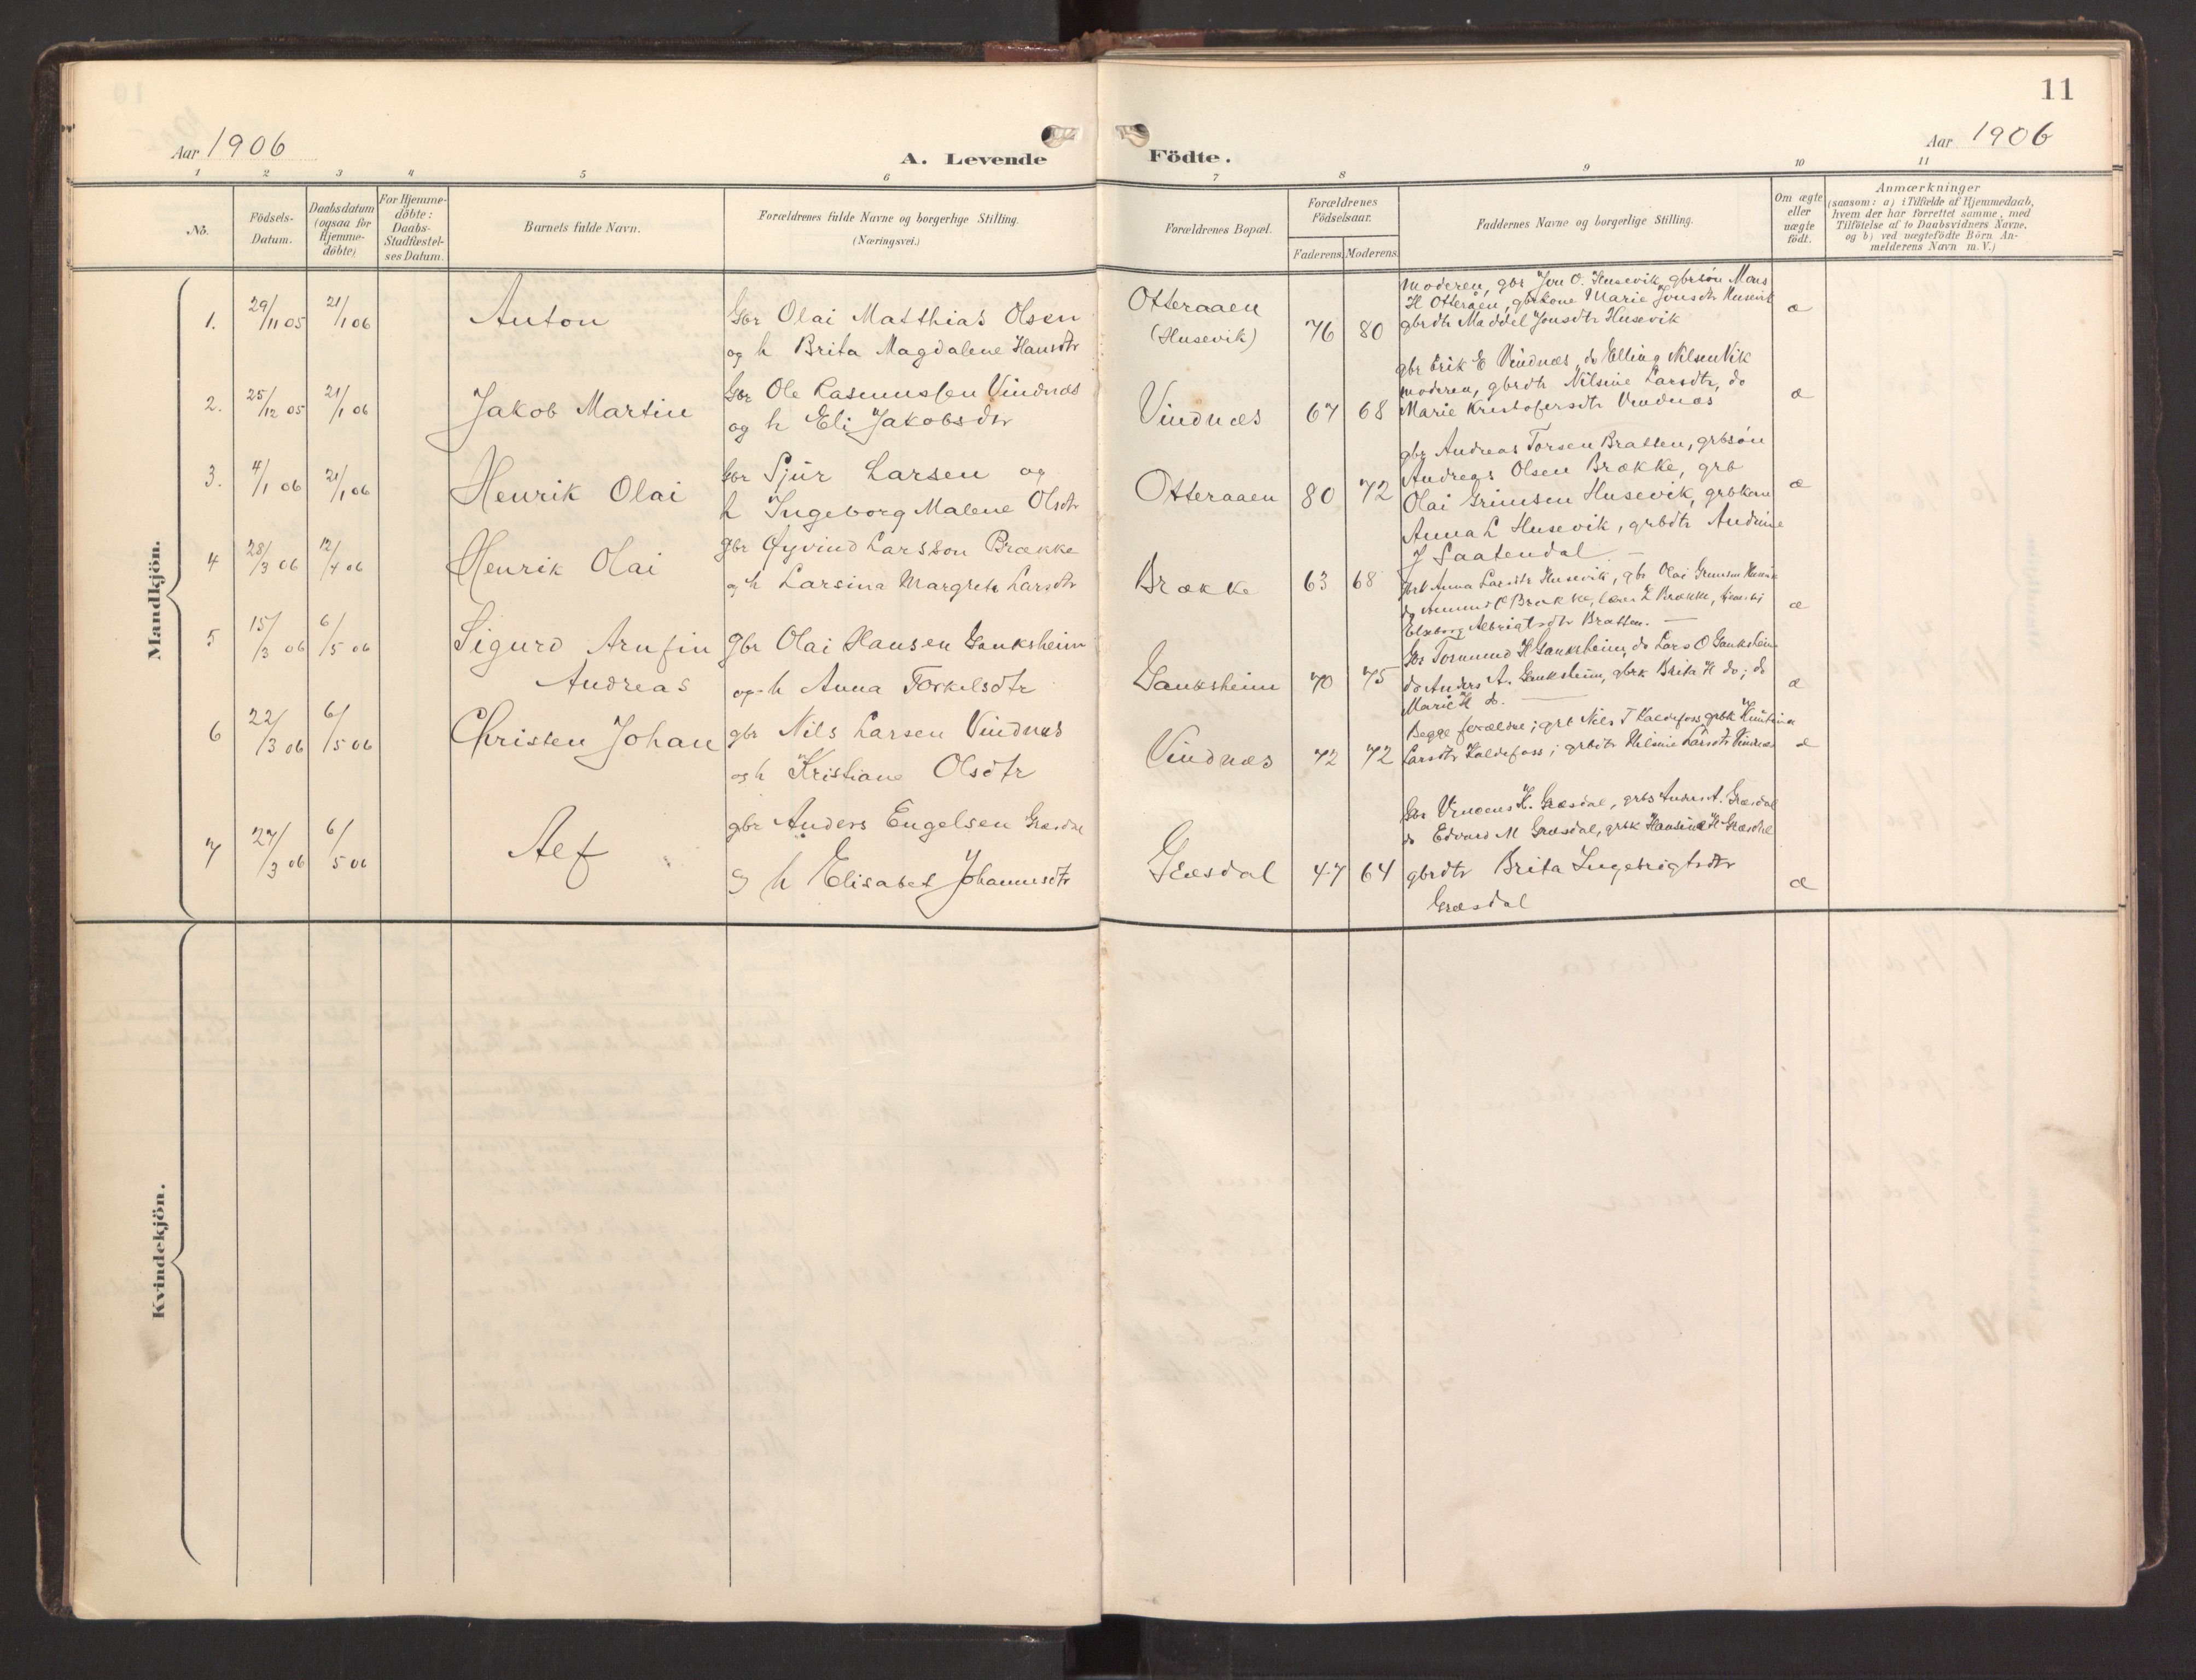 11
Aar 1906
A. Levende Födte.
Aar 1906
1 2 3 4 5 6 7 8 9 10 11
No.
Födsels-
Datum.
Daabsdatum
(ogsaa for
Hjemme-
döbte)
For Hjemme-
döbte:
Daabs-
Stadfæstel-
ses Datum.
Barnets fulde Navn.
Forældrenes fulde Navne og borgerlige Stilling.
(Næringsvei.)
Forældrenes Bopæl.
Forældrenes
Födselsaar.
Faderens. Moderens.
Faddernes Navne og borgerlige Stilling.
Om ægte
eller
uægte
födt.
Anmærkninger
(saasom: a) i Tilfælde af Hjemmedaab,
hvem der har forrettet samme, med
Tilföielse af to Daabsvidners Navne,
og b) ved uægtefödte Börn An-
melderens Navn m. V.)
Mandkjön.
1. 29/11 05 21/1 06 Anton
Gbr Olai Matthias Olsen
og h Brita Magdalene Hansdtr
Otteraaen
(Husevik)
76 80
Moderen, gbr Jon O. Husevik, gbrsön Mons
H Otteraaen, gbrkone Marie Jonsdtr Husevik
gbrdtr Maddel Jonsdtr Husevik
æ
2. 25/12 05 21/1 06 Jakob Martin
Gbr Ole Rasmussen Vindnæs
og h Eli Jakobsdtr
Vindnæs
67 68
gbr Erik E Vindnæs, do Elling Nilsen Vik
moderen, gbrdtr Nilsine Larsdtr, do
Marie Kristofersdtr Vindnæs
æ
3. 4/1 06 21/1 06 Henrik Olai
Gbr Sjur Larsen og
h Ingeborg Malene Olsdtr
Otteraaen
80 72
gbr Andreas Torsen Bratten, grbsön
Andreas Olsen Brække, grb
Olai Grimsen Husevik, grbkone
Anna L Husevik, grbdtr Andrine
J Saatendal —
æ
4 28/3 06 12/4 06 Henrik Olai
gbr Øyvind Larsson Brække
og h Larsina Margrete Larsdtr
Brække
63 68
Anna Larsdtr Husevik, gbr Olai Grimsen Husevik
Brække, L Brække,
Elseborg Albrigtsdtr Bratten. —
æ
5 15/3 06 6/5 06 Sigurd Arnfin
Andreas
gbr Olai Hansen Ganksheim
og h Anna Torkelsdtr
Ganksheim
70 75
Gbr Tormund H Ganksheim, do Lars O Ganksheim
do Anders A. Ganksheim, gbrk Brita H do; do
Marie H do. —
æ
6 22/3 06 6/5 06 Christen Johan
gbr Nils Larsen Vindnæs
og h Kristiane Olsdtr
Vindnæs
72 72
Begge forældre; grb Nils T Kaldefoss grbk
Larsdtr Kaldefoss; grbdtr Nilsine Larsdtr Vindnæs
æ
7 27/3 06 6/5 06 Alf
gbr Anders Engelsen Græsdal
og h Elisabet Johannesdtr
Græsdal
47 64
Gbr K. Græsdal, grbs Anders A. Græsdal
do Edvard M Græsdal, grbk Hansine H Græsdal
gbrdtr Brita Ingebrigtsdtr
Græsdal
æ
Kvindekjön.